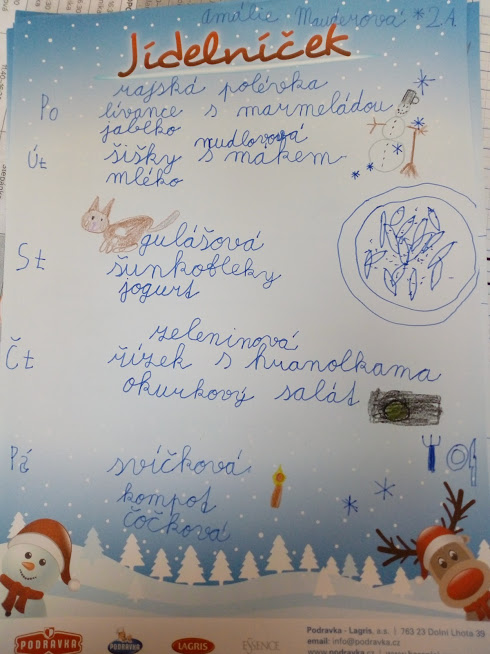 Amálie Mauderová *2A
Jídelníček
Po rajská polévka
lívance s marmeládou
jablko
Út nudlovová
šišky s mákem
mléko
St gulášová
šunkofleky
jogurt
zeleninová
Čt řízek s hranolkama
okurkový salát
Pá svíčková
kompot
čočková
PODRAVKA PODRAVKA LAGRIS ESSENCE
Podravka - Lagris, a.s. | 763 23 Dolní Lhota 39
email: info@podravka.cz